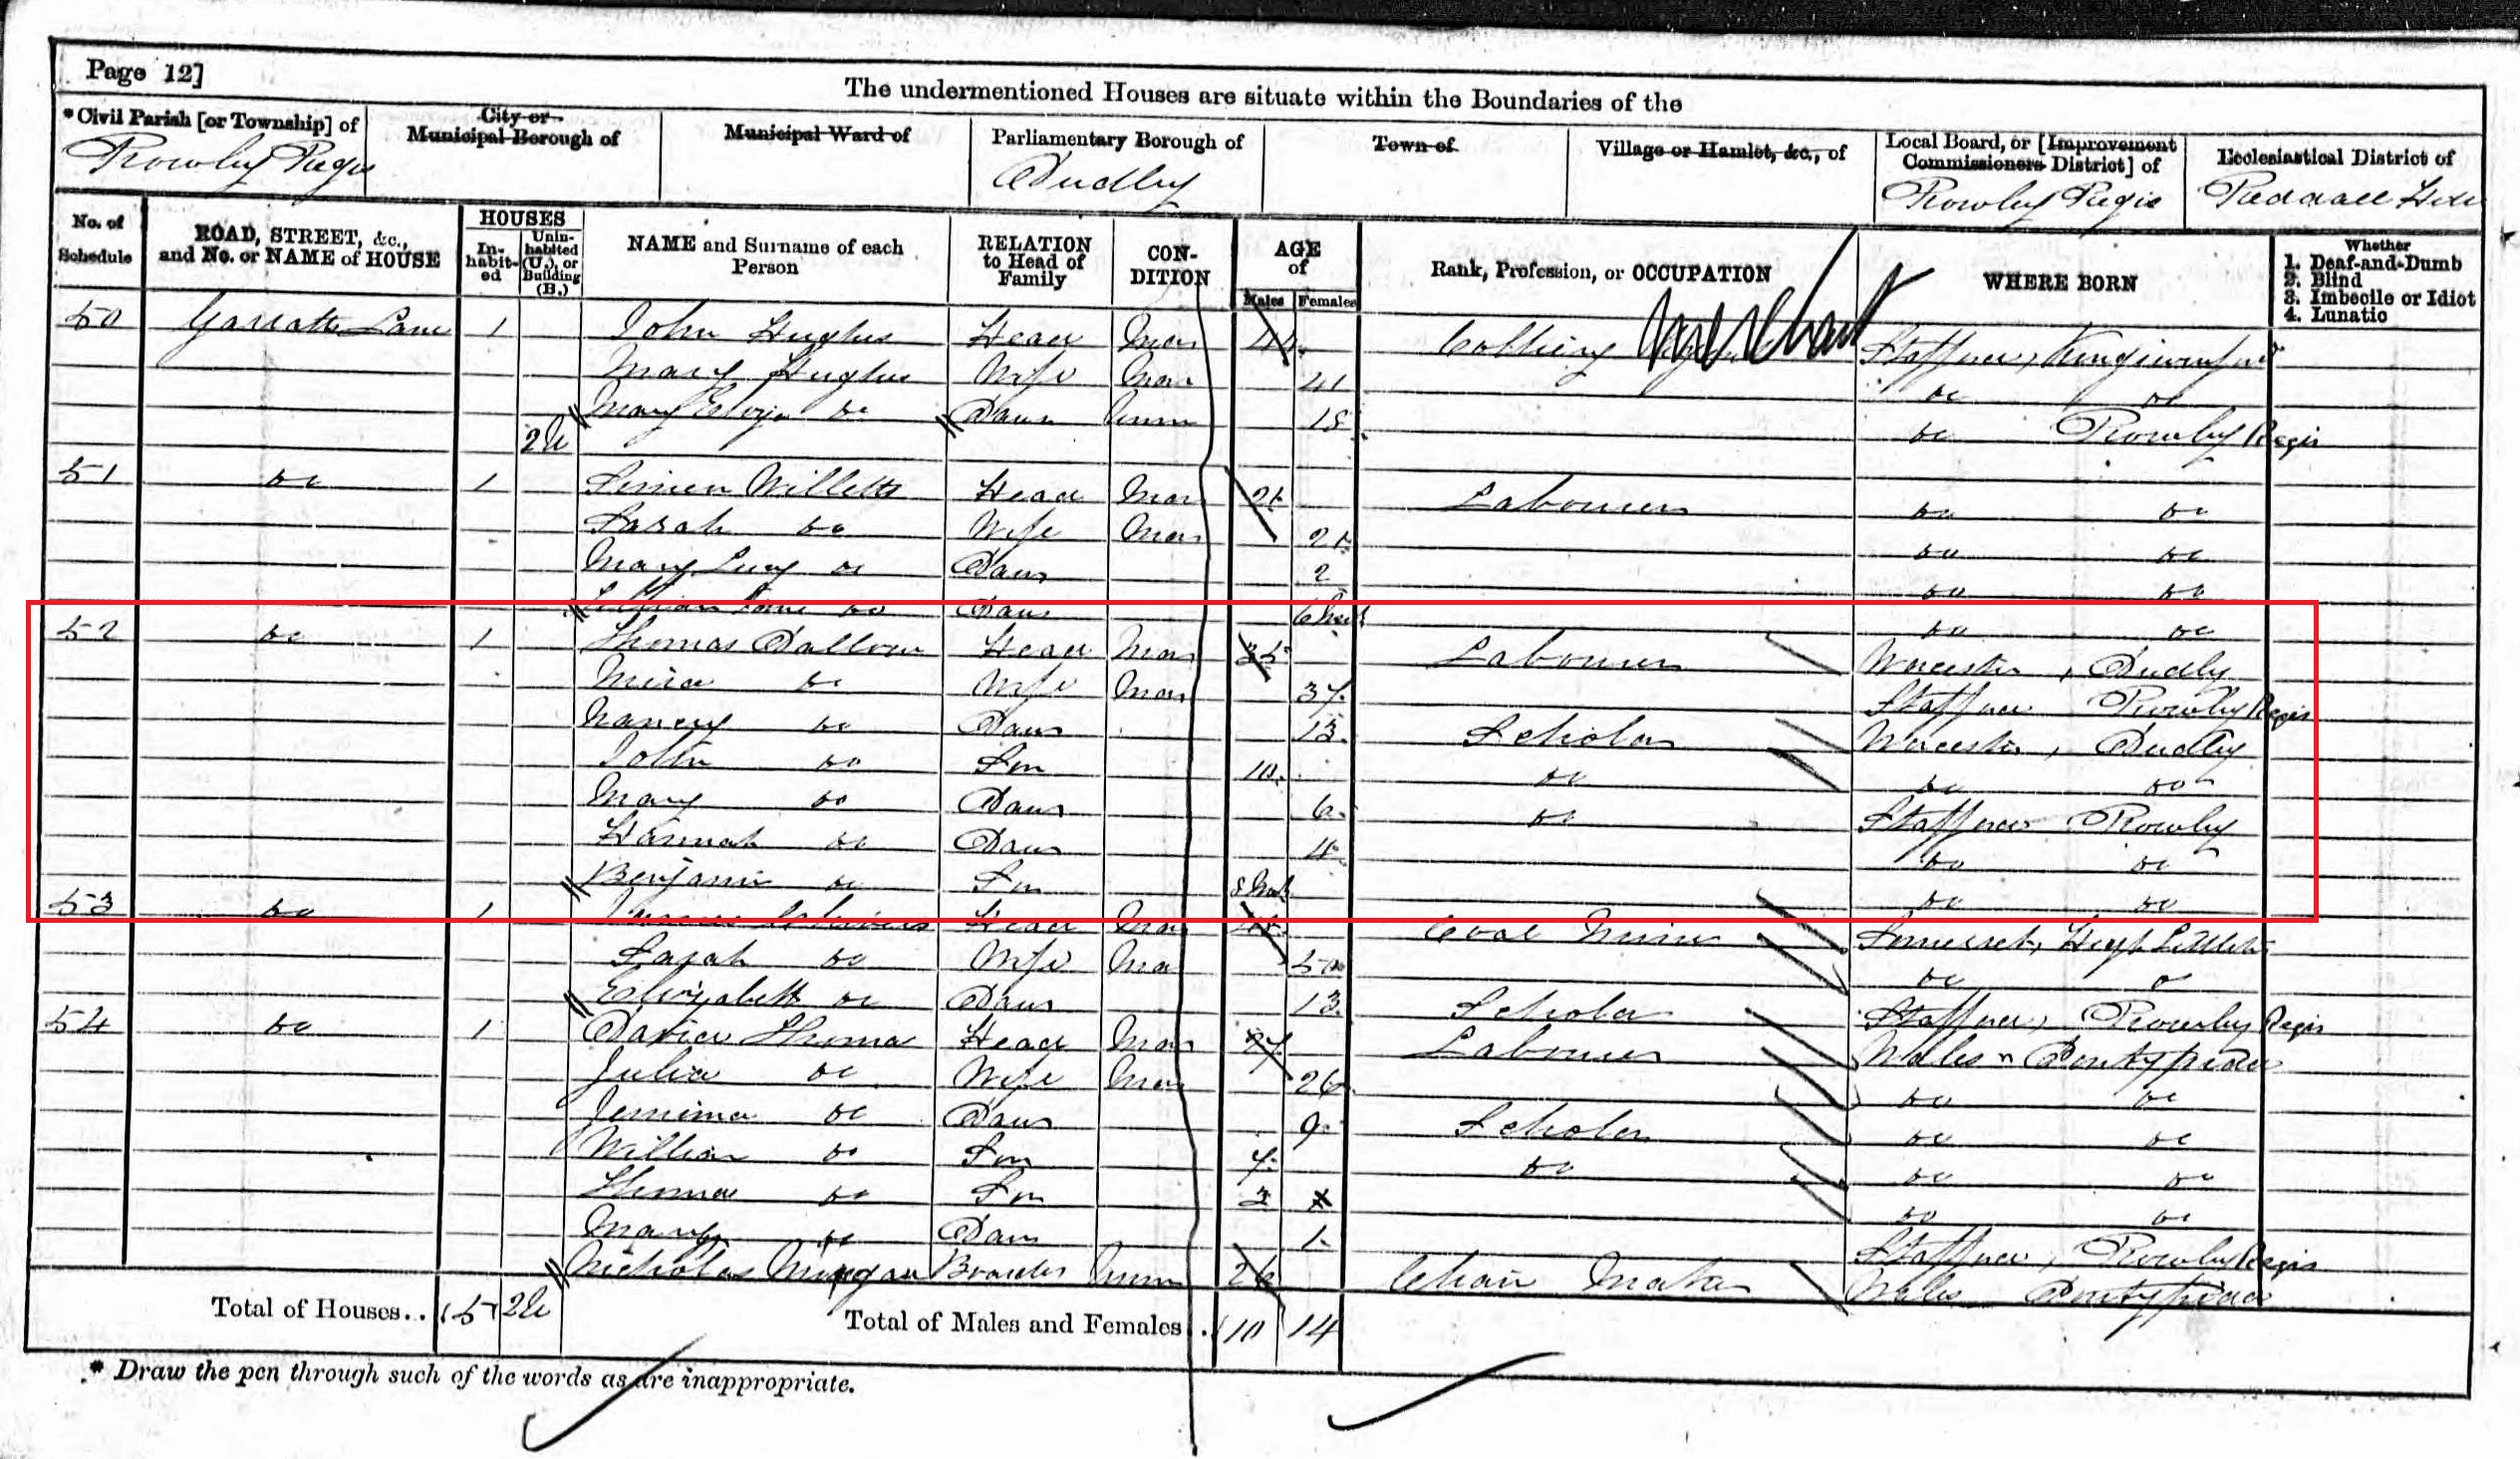 Page 12]
The undermentioned Houses are situate within the Boundaries of the
*Civil Parish [or Township] of City or Municipal Borough of Municipal Ward of Parliamentary Borough of Town of Village or Hamlet, &c., of Local Board, or [Improvement Commissioners District] of Ecclesiastical District of
Rowley Regis Dudley Rowley Regis Reddall Hill
No. of Schedule ROAD, STREET, &c., and No. or NAME of HOUSE HOUSES In-habit-ed Unin-habited (U.), or Building (B.) NAME and Surname of each Person RELATION to Head of Family CON-DITION AGE of Males Females Rank, Profession, or OCCUPATION WHERE BORN Whether 1. Deaf-and-Dumb 2. Blind 3. Imbecile or Idiot 4. Lunatic
50 Garratts Lane 1 John Hughes Head Mar 44 Colliery Staffordsh, Kingswinford
Mary Hughes Wife Mar 41 do do
Mary do Daur Unm 18 do Rowley Regis
2U
51 do 1 Simeon Willetts Head Mar Labourer do do
Sarah do Wife Mar do do
Mary Lucy do Daur 2 do do
Jane do Daur do do
52 do 1 Thomas Head Mar 35 Labourer Worcester, Dudley
do Wife Mar 37 Staffordsh Rowley Regis
Nancy do Daur 13 Scholar Worcester, Dudley
John do Son 10 do do do
Mary do Daur 6 do Staffordsh Rowley
Hannah do Daur 4 do do
Benjamin do Son 8 Mo do do
53 do 1 Head Mar Coal Miner Somerset, High Littleton
Sarah do Wife Mar 50 do do
Elizabeth do Daur 13 Scholar Staffordsh, Rowley Regis
54 do 1 David Thomas Head Mar 27 Labourer Wales Pontypridd
Julia do Wife Mar 26 do do
Jemima do Daur 9 Scholar do do
William do Son 7 do do do
Thomas do Son 3 do do
Mary do Daur 1 Staffordsh, Rowley Regis
Nicholas Morgan Boarder Unm 26 Chain Maker Wales Pontypridd
Total of Houses.. 5 2U Total of Males and Females.. 10 14
* Draw the pen through such of the words as are inappropriate.